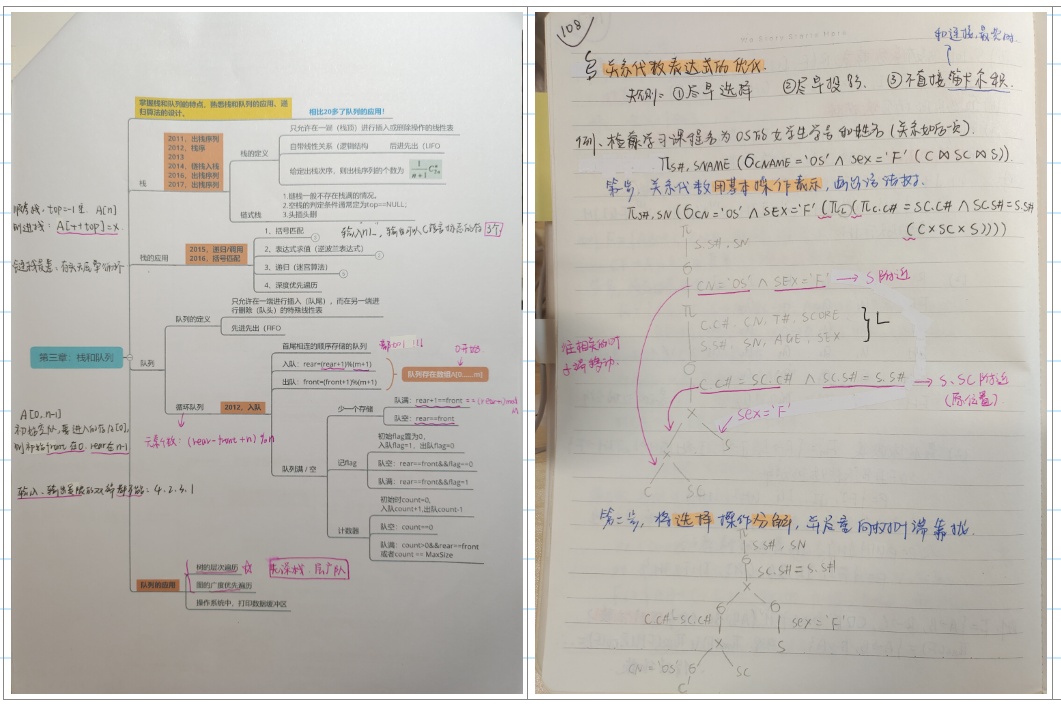 掌握栈和队列的特点，熟悉栈和队列的应用、递
归算法的设计。
相比20多了队列的应用！
第三章：栈和队列
栈
2011、出栈序列
2012、栈序
2013
2014、链栈入栈
2016、出栈序列
2017、出栈序列
栈的定义
只允许在一端（栈顶）进行插入或删除操作的线性表
自带线性关系（逻辑结构
后进先出（LIFO
给定出栈次序，则出栈序列的个数为
链式栈
1.链栈一般不存在栈满的情况，
2.空栈的判定条件通常定为top==NULL;
3.头插头删
顺序栈、top=-1 时 A[n]
则进栈：A[++top]=x.
栈的应用
2015、递归/调用
2016、括号匹配
1、括号匹配
2、表达式求值（逆波兰表达式）
3、递归（迷宫算法）
4、深度优先遍历
队列
队列的定义
只允许在一端进行插入（队尾），而在另一端进
行删除（队头）的特殊线性表
先进先出（FIFO
循环队列
2012、入队
首尾相连的顺序存储的队列
入队：rear=(rear+1)%(m+1)
出队：front=(front+1)%(m+1)
队列存在数组A[0......m]
0开始
队列满 / 空
少一个存储
队满：rear+1==front
队空：rear==front
记flag
初始flag置为0,
入队flag=1，出队flag=0
队空：rear==front&&flag==0
队满：rear==front&&flag=1
计数器
初始时count=0,
入队count+1,出队count-1
队空：count==0
队满：count>0&&rear==front
或者count == MaxSize
A[0,n-1]
初始空队,要进入的存A[0],
则初始front在0. rear在n-1
元素个数：(rear-front+n)%n
队列的应用
树的层次遍历
图的广度优先遍历
操作系统中，打印数据缓冲区
先深栈、层广队
108
§ 关系代数表达式的优化.
规则：①尽早选择 ②尽早投影 ③不直接笛卡尔积.
例、检索学习课程名为OS的女学生学号和姓名（关系如后一页）.
π S#, SNAME (6 CNAME='OS' ∧ SEX='F' (C ⋈ SC ⋈ S)).
第一步、关系代数用基本操作表示，画出语法树.
π S#, SN (6 CN='OS' ∧ SEX='F' (π L (π C.C# = SC.C# ∧ SC.S# = S.S#
(C×SC×S))))
π
S.S#, SN
6
CN='OS' ∧ SEX='F' → S附近
π
C.C#, CN, T#, SCORE,
S.S#, SN, AGE, SEX
} L
往相关的叶
子端移动.
C.C# = SC.C# ∧ SC.S# = S.S# → S、SC附近
（原位置）
×
SEX='F'
×
S
C
SC
第二步，将选择操作分解，并尽量向树叶端靠拢.
π
S.S#, SN
6
SC.S# = S.S#
×
C.C#=SC.C# 6
6 SEX='F'
×
S
CN='OS' 6
SC
C